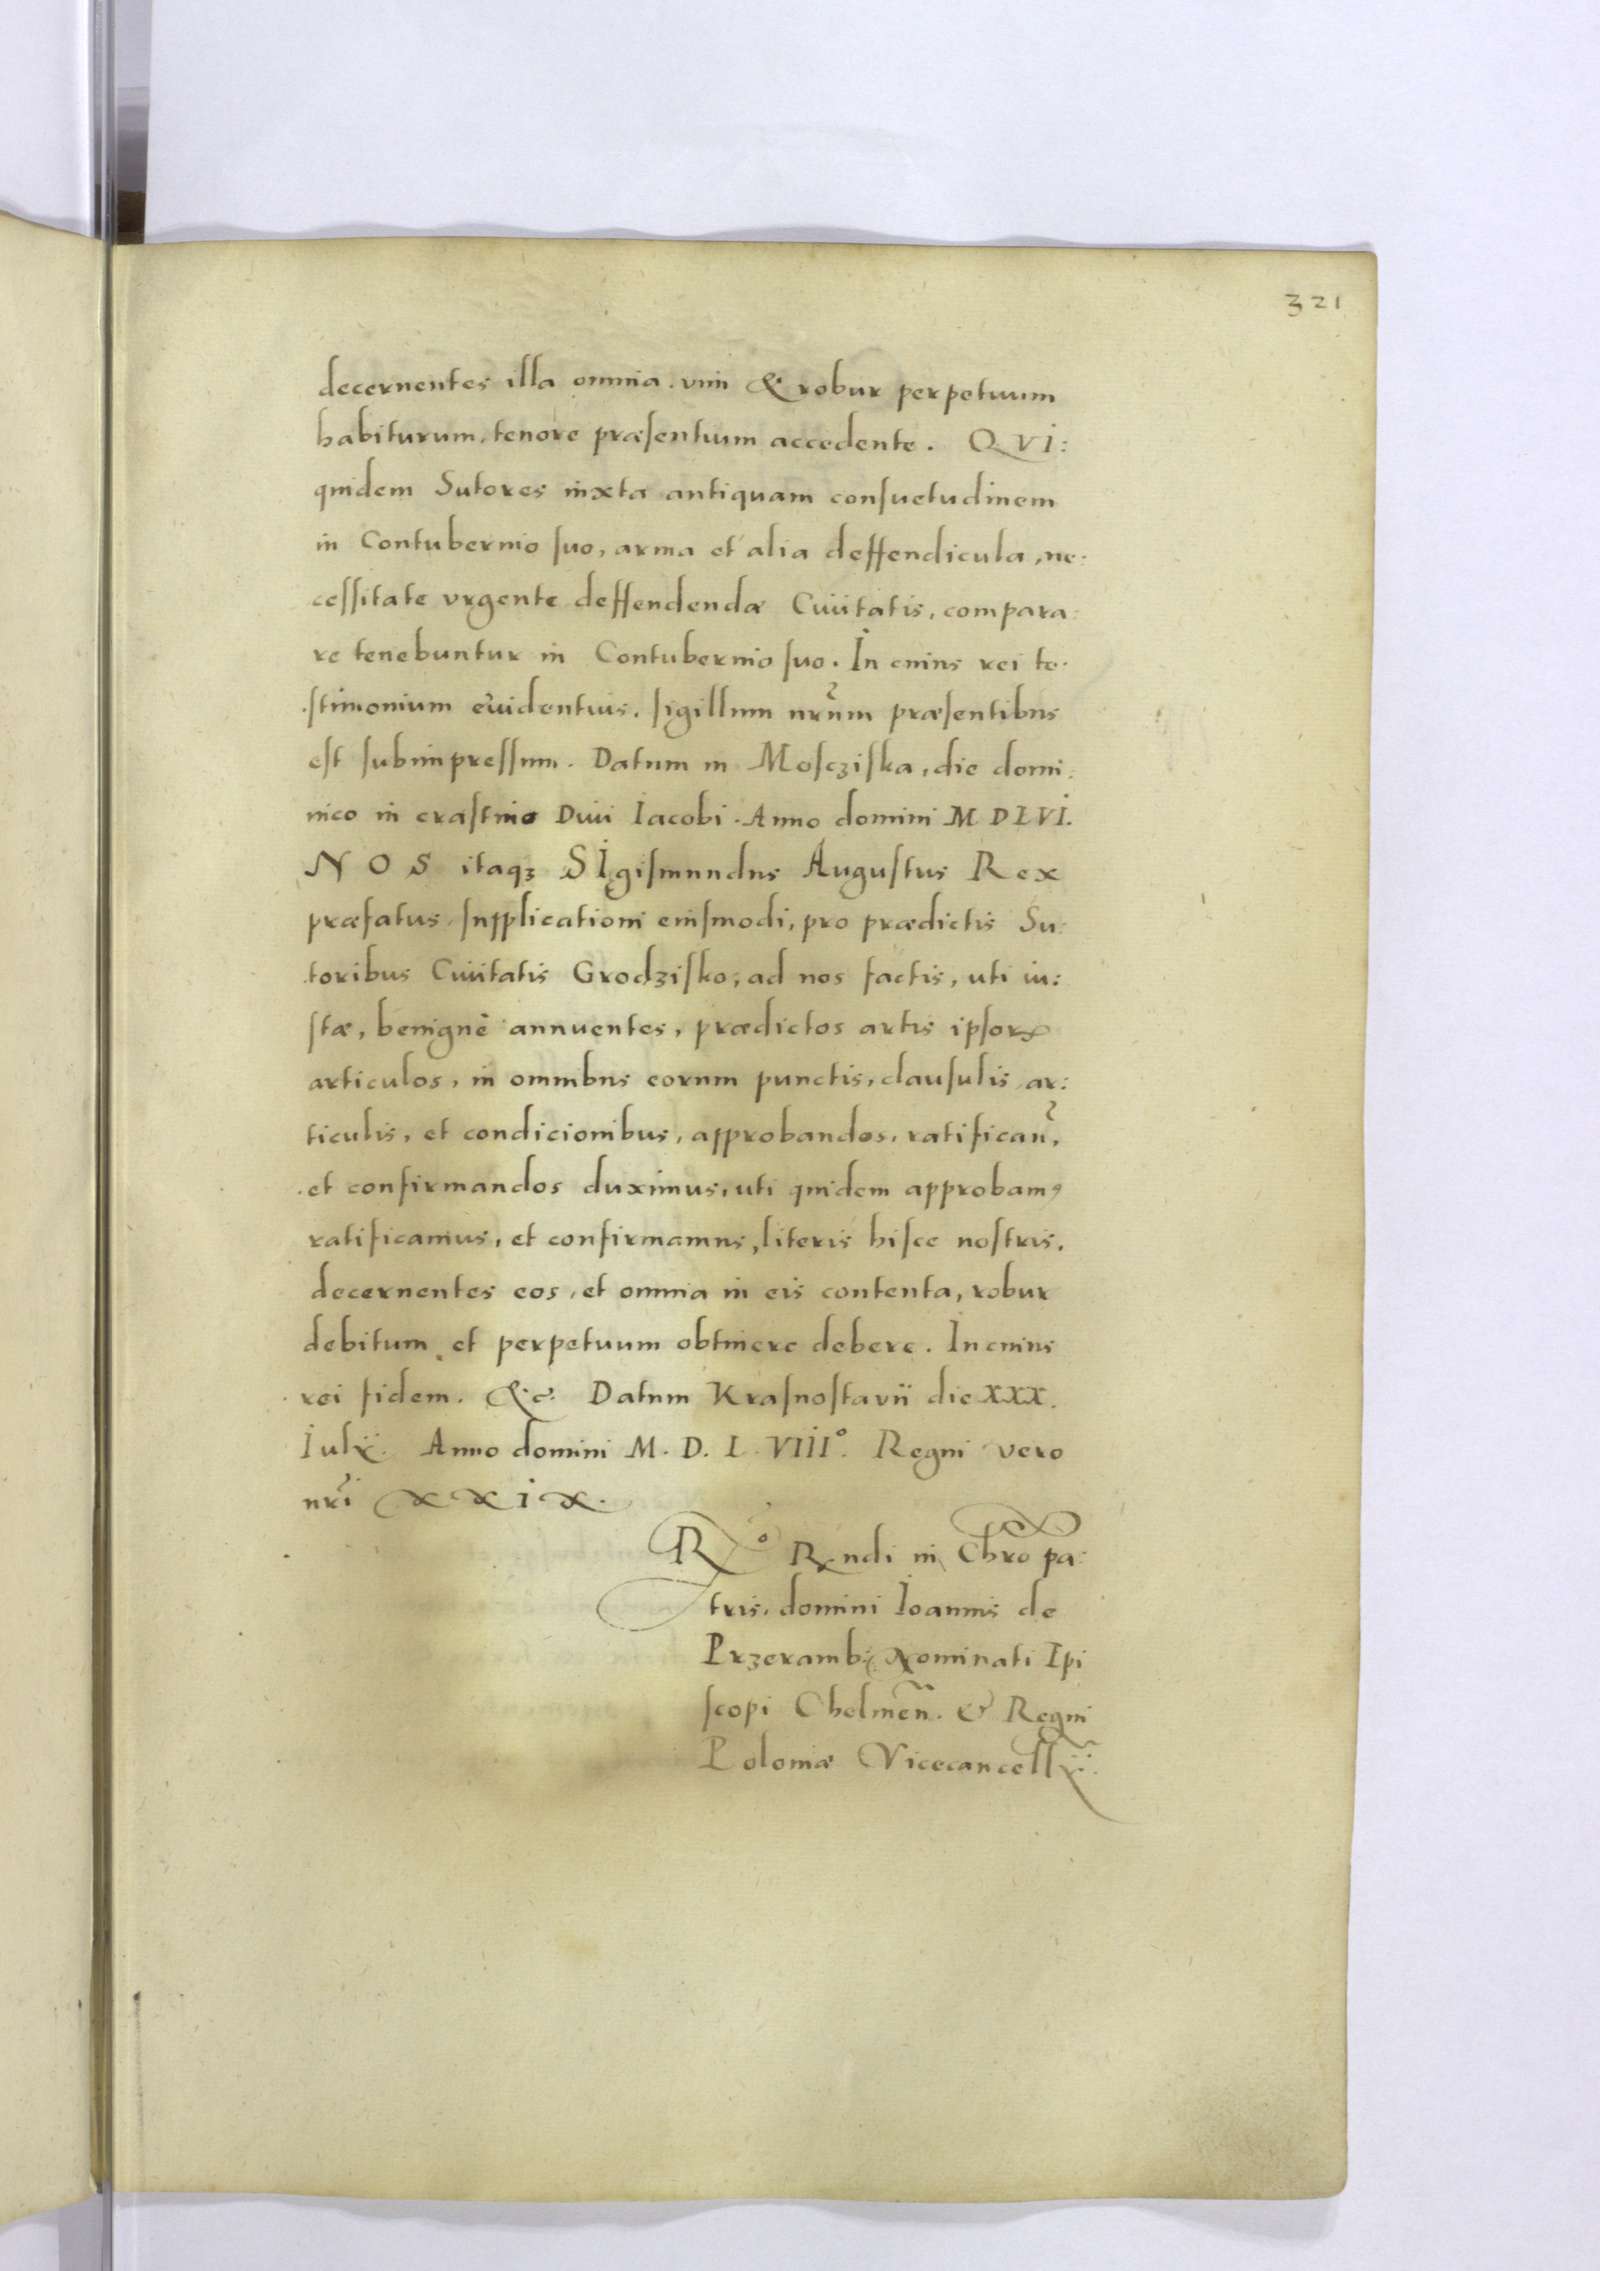 321
decernentes illa omnia. vim & robur perpetuum
habiturum, tenore præſentium accedente. QVI:
quidem Sutores iuxta antiquam conſuetudinem
in Contubernio ſuo, arma et alia deffendicula, ne:
ceſſitate vrgente deffendendæ Ciuitatis, compara:
re tenebuntur in Contubernio ſuo. In cuius rei te:
ſtimonium euidentius, ſigillum nr̃um præſentibus
eſt ſubimpreſſum. Datum in Moſcziſka, die domi:
nico in craſtino Diui Iacobi. Anno domini M D L VI.
NOS itaqꝫ SIgiſmundus Auguſtus Rex
præfatus, ſupplicationi eiuſmodi, pro prædictis Su:
toribus Ciuitatis Grodziſko, ad nos factis, uti iu:
ſtæ, benignè annuentes, prædictos artis ipſoꝝ
articulos, in omnibus eorum punctis, clauſulis, ar:
ticulis, et condicionibus, approbandos, ratifican̄,
et confirmandos duximus, uti quidem approbamꝰ
ratificamus, et confirmamus, literis hiſce noſtris,
decernentes eos, et omnia in eis contenta, robur
debitum et perpetuum obtinere debere. In cuius
rei fidem. &c. Datum Kraſnoſtavii die XXX.
Iulij. Anno domini M. D. L. VIIIº. Regni vero
nr̃i XXIX.
Rº Rx̃ndi in Chro pa:
tris, domini Ioannis de
Przeramb: Nominati Ipi
ſcopi Chelmen̄. & Regni
Poloniæ Vicecancellrij.